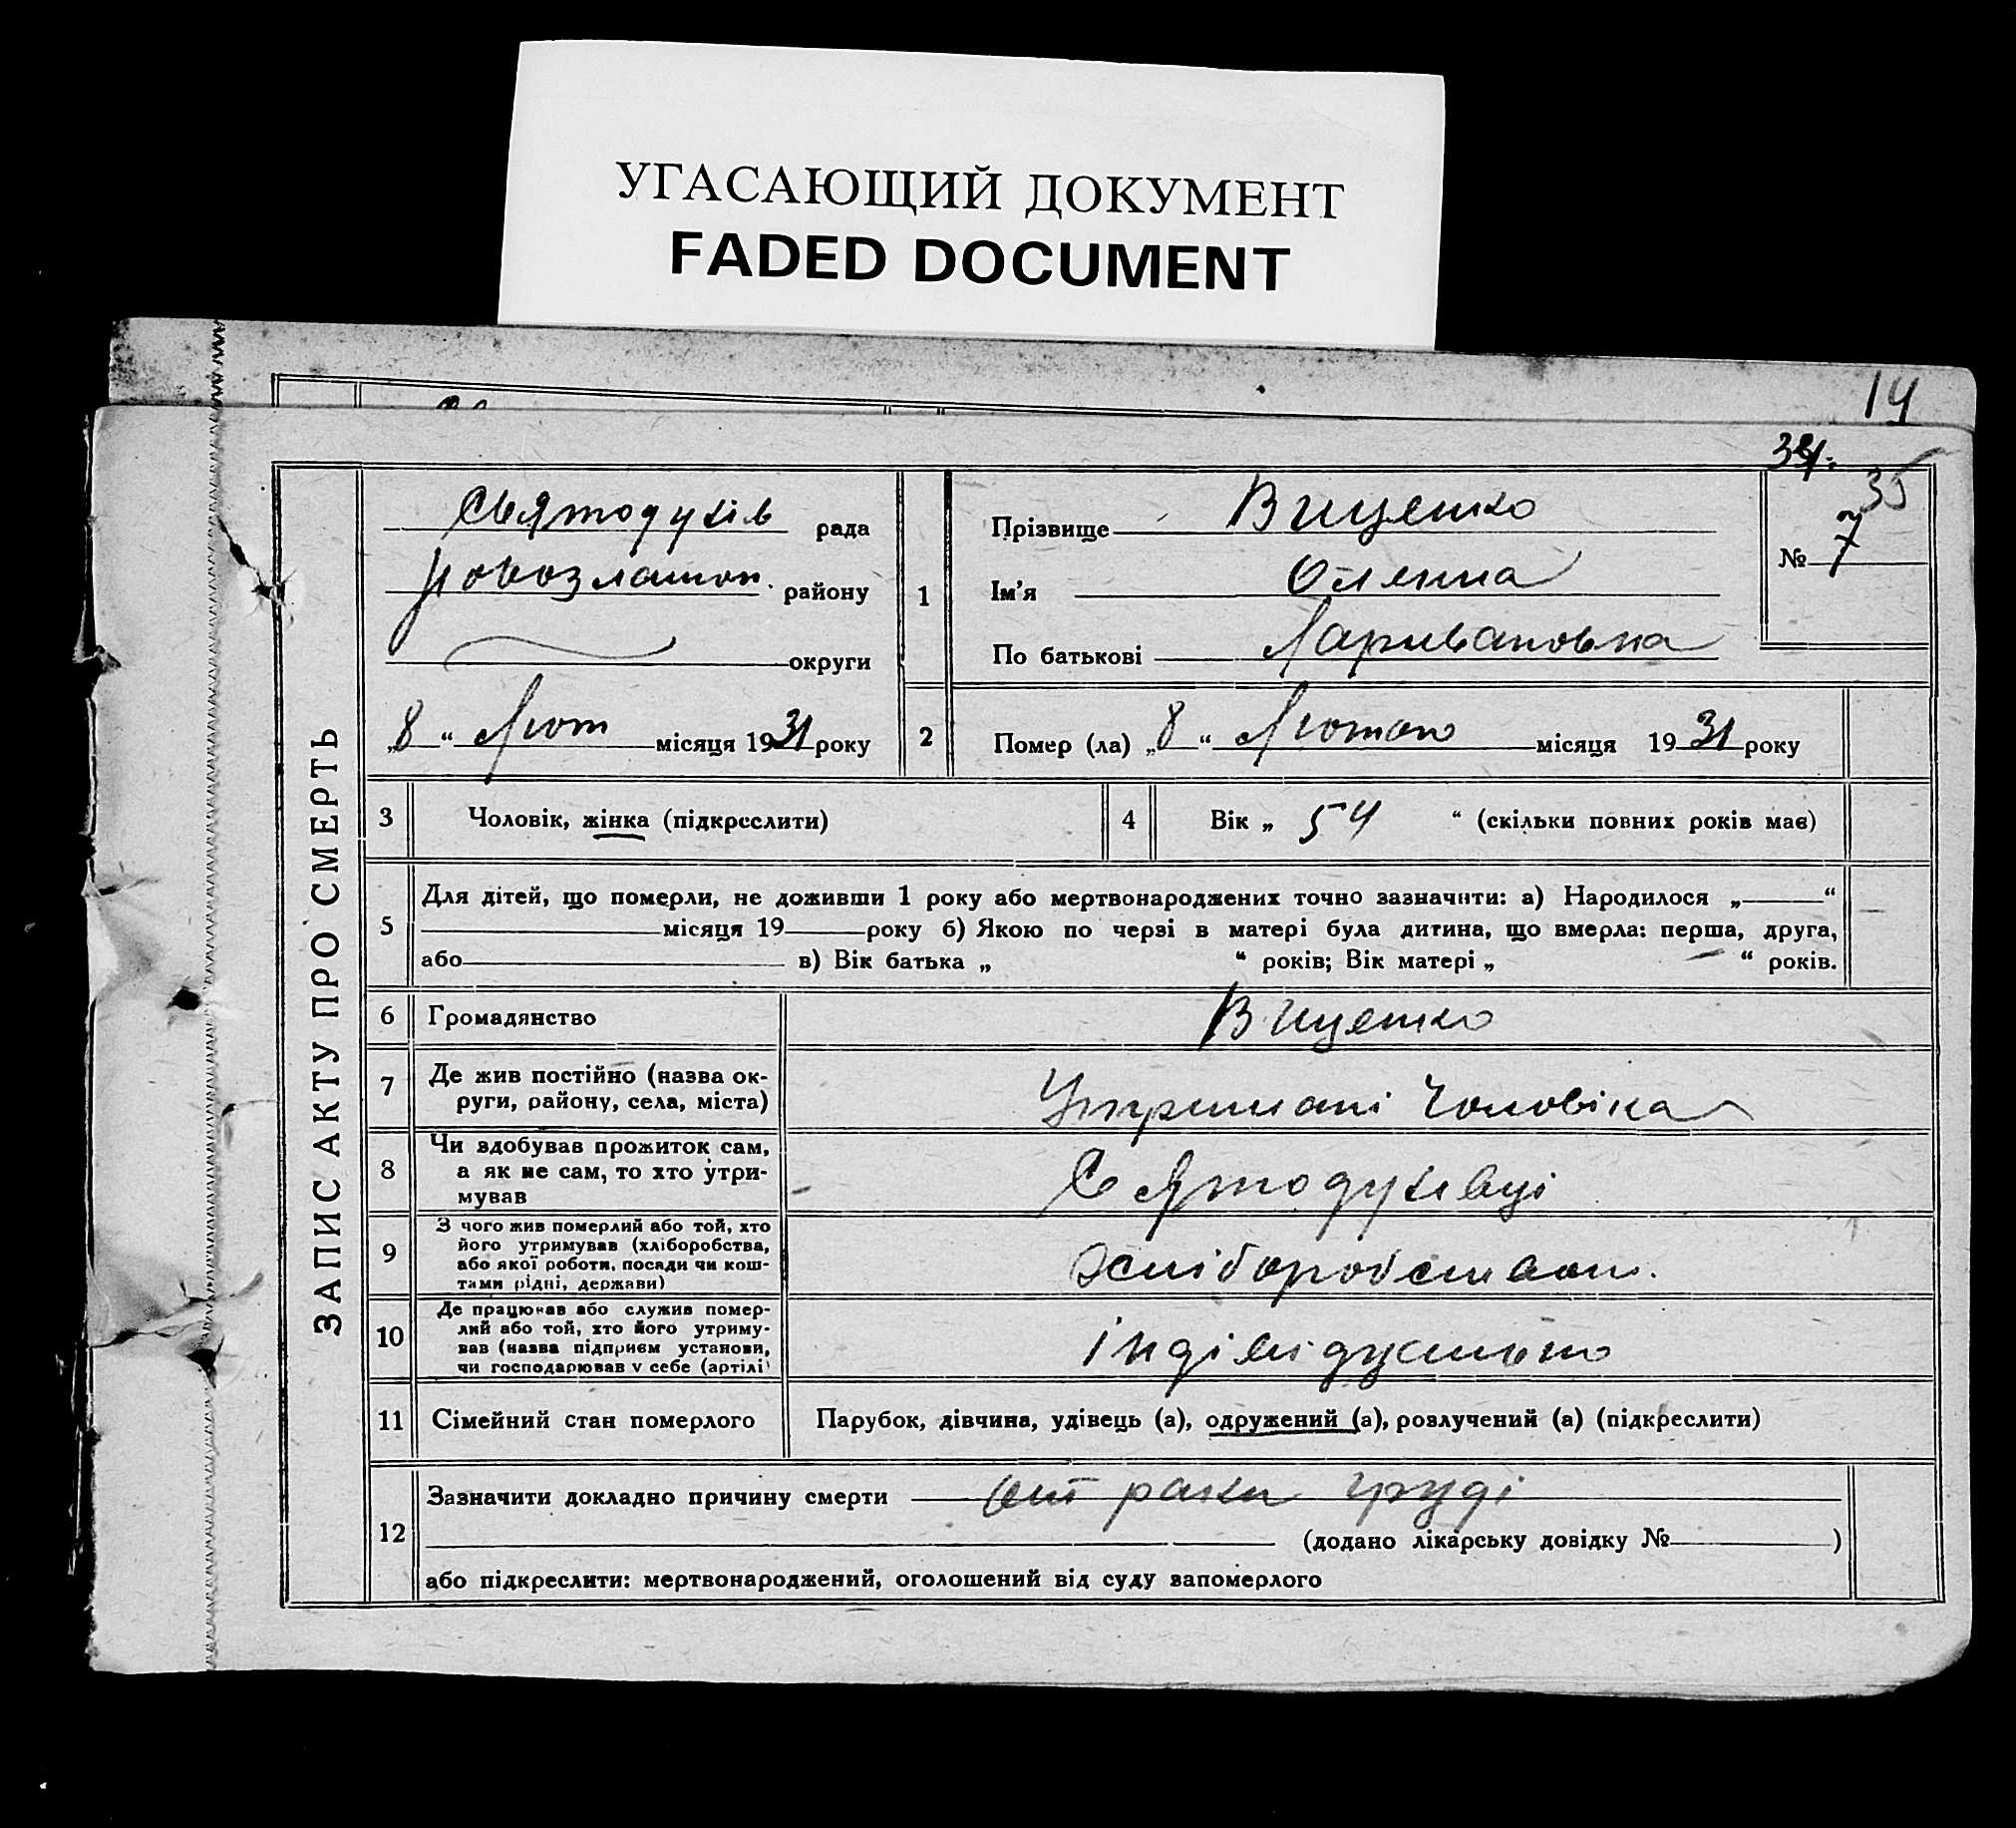 УГАСАЮЩИЙ ДОКУМЕНТ
FADED DOCUMENT
14
35
ЗАПИС АКТУ ПРО СМЕРТЬ
Святодухів рада
Новозлатоп. району
округи
„8“ Лют місяця 1931 року
1
Прізвище Вищенко
Ім'я Оленна
По батькові
№ 7
2
Помер (ла) „8“ Лютого місяця 1931 року
3 Чоловік, жінка (підкреслити)
4 Вік „ 54 “ (скільки повних років має)
5
Для дітей, що померли, не доживши 1 року або мертвонароджених точно зазначити: а) Народилося „ “
місяця 19 року б) Якою по черзі в матері була дитина, що вмерла: перша, друга,
або в) Вік батька „ “ років; Вік матері „ — “ років.
6 Громадянство Вищенко
7 Де жив постійно (назва ок-
руги, району, села, міста)
Утримані Чоловіка
8 Чи здобував прожиток сам,
а як не сам, то хто утри-
мував
Святодухівці
9 З чого жив померлий або той, хто
його утримував (хліборобства,
або якої роботи, посади чи кош-
тами рідні, держави)
Хліборобством.
10 Де працював або служив помер-
лий або той, хто його утриму-
вав (назва підприєм установи,
чи господарював у себе (артілі)
індівідуально
11 Сімейний стан померлого Парубок, дівчина, удівець (а), одружений (а), розлучений (а) (підкреслити)
12
Зазначити докладно причину смерти от раки груді
(додано лікарську довідку № )
або підкреслити: мертвонароджений, оголошений від суду запомерлого